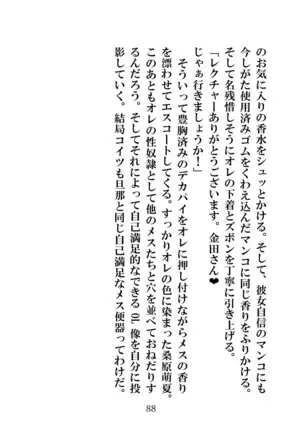 のお気に入りの香水をシュッとかける。そして、彼女自信のマンコにも
今しがた使用済みゴムをくわえ込んだマンコに同じ香りをふりかける。
そして名残惜しそうにオレの下着とズボンを丁寧に引き上げる。
「レクチャーありがとうございます。金田さん♥
じゃぁ行きましょうか！」
そういって豊胸済みのデカパイをオレに押し付けながらメスの香り
を漂わせてエスコートしてくる。すっかりオレの色に染まった桑原萌夏。
このあともオレの性奴隷として他のメスたちと穴を並べておねだりす
るんだろう。そしてそれによって自己満足的なできるOL像を自分に投
影していく。結局コイツも旦那と同じ自己満足なメス便器ってわけだ。
88